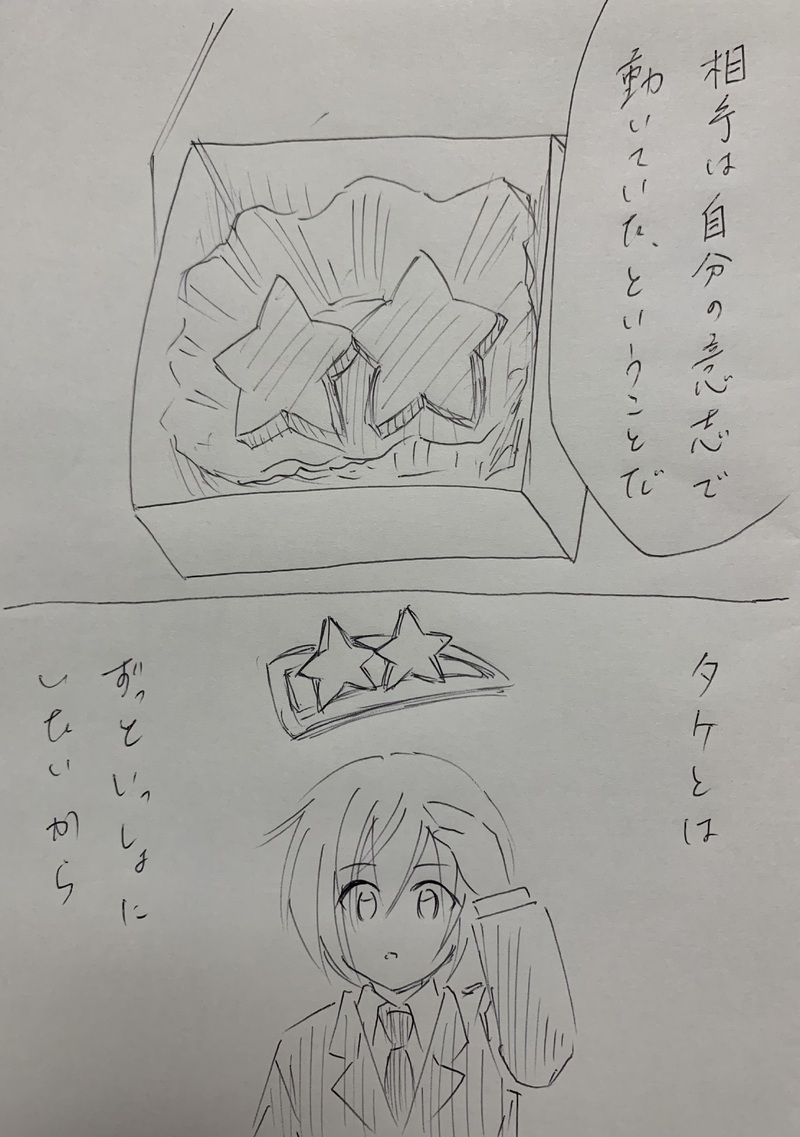 相手は自分の意志で
動いていた、ということだ
タケとは
ずっといっしょに
いたいから